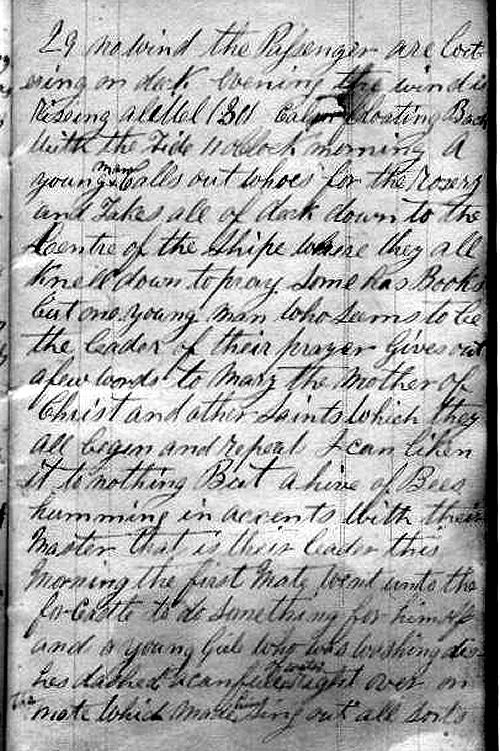 29 no wind the Passenger are Loit
ering on deck Evening the wind is
Rissing a littel 130 Calm floating Back
With the Tide 11 oclock morning A
young man Calls out whoes for the rosery
and Takes all of deck down to the
Centre of the Shipe where they all
Knell down to pray Some has Books
but one young man who seems to be
the leader of their prayer Gives out
a few words to Mary the Mother of
Christ and other Saints Which they
all begin and repeat I can liken
it to nothing But a hive of Bees
humming in accents With their
Master that is their leader this
Morning the first Mate Went unto the
for Castle to do Something for himself
and a young Girls who was washing dis
hes dashed a can full of water right over on
The mate Which made him Sing out all sorts